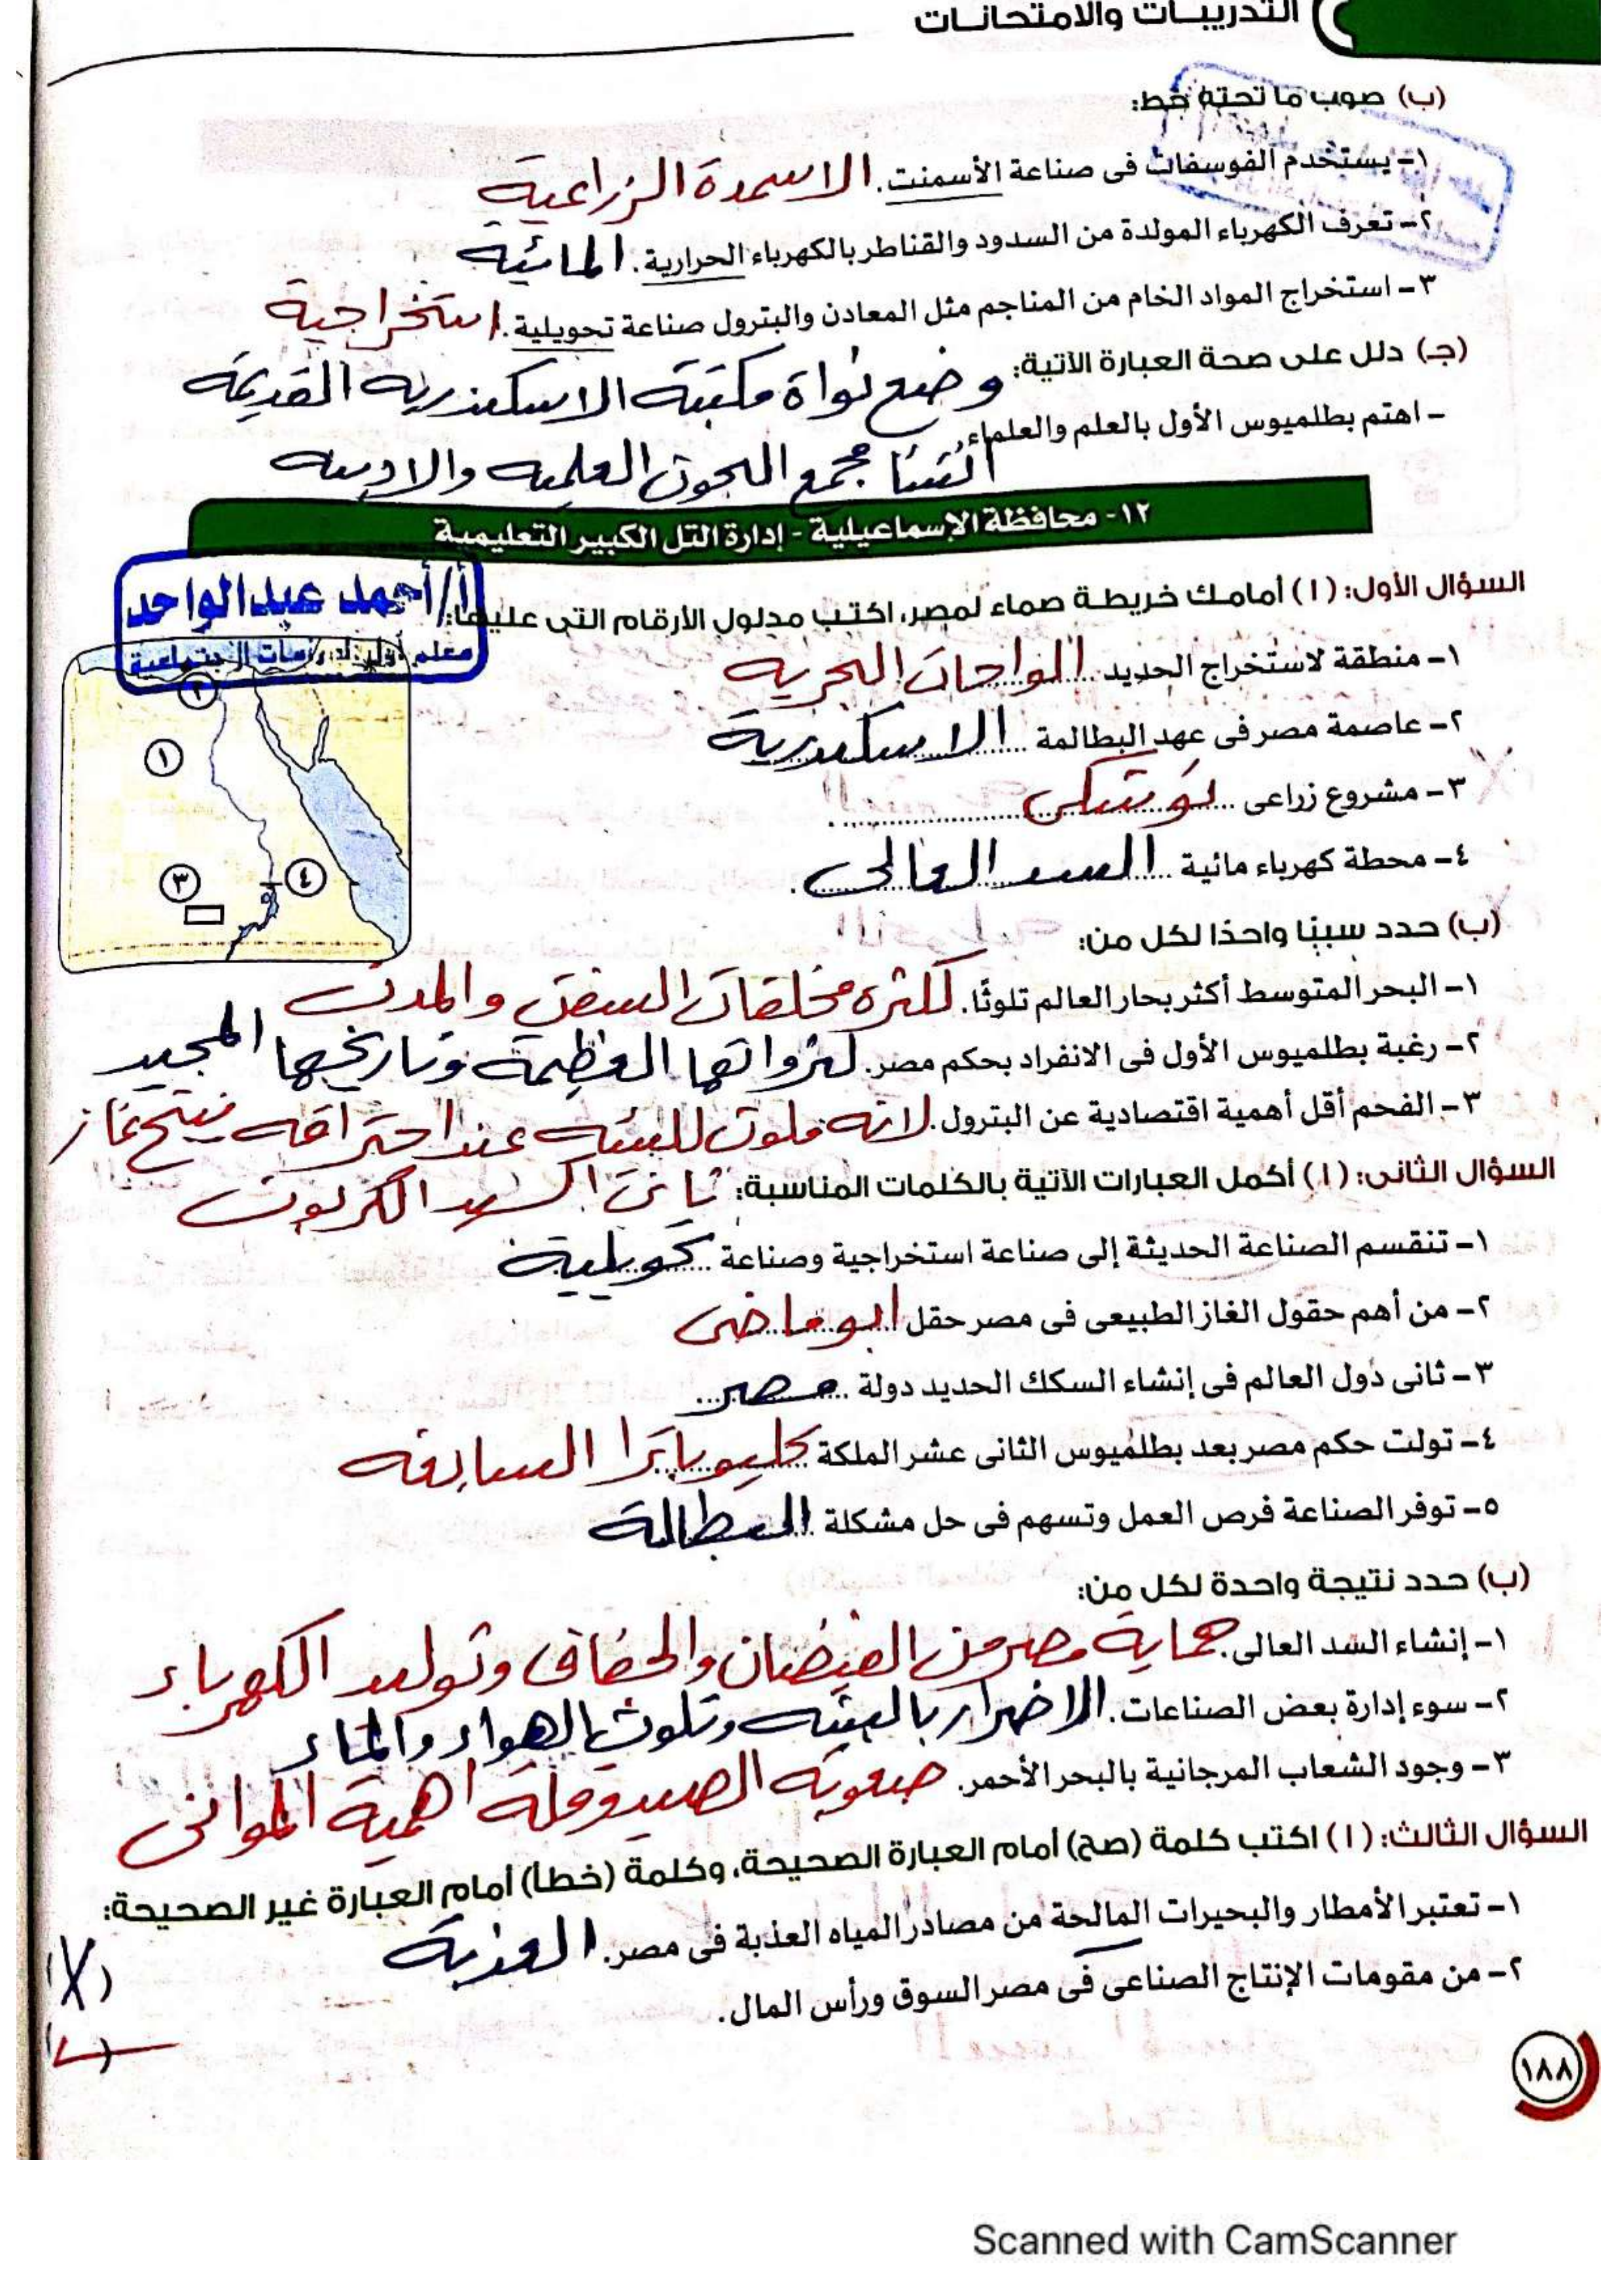 التدريبات والامتحانات
(ب) صوب ما تحته خط:
١- يستخدم الفوسفات فى صناعة الأسمنت. الاسمدة الزراعية
٢- تعرف الكهرباء المولدة من السدود والقناطر بالكهرباء الحرارية. المائية
٣- استخراج المواد الخام من المناجم مثل المعادن والبترول صناعة تحويلية. استخراجية
(جـ) دلل على صحة العبارة الآتية: وضع نواة مكتبة الاسكندريه القديمه
- اهتم بطلميوس الأول بالعلم والعلماء.
انشأ مجمع البحوث العلميه والادبيه
١٢- محافظة الإسماعيلية - إدارة التل الكبير التعليمية
أ/أحمد عبدالواحد
السؤال الأول: (١) أمامك خريطة صماء لمصر، اكتب مدلول الأرقام التى عليها:
معلم أول الدراسات الاجتماعية
١- منطقة لاستخراج الحديد الواحات البحريه
٢- عاصمة مصر فى عهد البطالمة الاسكندرية
٣- مشروع زراعى توشكى
٤- محطة كهرباء مائية السد العالى
٢
١
٣
٤
(ب) حدد سببًا واحدًا لكل من:
١- البحر المتوسط أكثر بحار العالم تلوثًا. لكثره مخلفات السفن والمدن
٢- رغبة بطلميوس الأول فى الانفراد بحكم مصر. لثرواتها العظيمة وتاريخها المجيد
٣- الفحم أقل أهمية اقتصادية عن البترول. لانه ملوث للبيئه عند احتراقه ينتج غاز
السؤال الثانى: (١) أكمل العبارات الآتية بالكلمات المناسبة: ثانى اكسيد الكربون
١- تنقسم الصناعة الحديثة إلى صناعة استخراجية وصناعة تحويلية
٢- من أهم حقول الغاز الطبيعى فى مصر حقل ابو ماضى
٣- ثانى دول العالم فى إنشاء السكك الحديد دولة مصر
٤- تولت حكم مصر بعد بطلميوس الثانى عشر الملكة كليوباترا السابعه
٥- توفر الصناعة فرص العمل وتسهم فى حل مشكلة البطالة
(ب) حدد نتيجة واحدة لكل من:
١- إنشاء السد العالى. حماية مصر من الفيضان والجفاف وتوليد الكهرباء
٢- سوء إدارة بعض الصناعات. الاضرار بالبيئه وتلوث الهواء والماء
٣- وجود الشعاب المرجانية بالبحر الأحمر. صعوبة الصيد وقلة اهمية الموانى
السؤال الثالث: (١) اكتب كلمة (صح) أمام العبارة الصحيحة، وكلمة (خطأ) أمام العبارة غير الصحيحة:
١- تعتبر الأمطار والبحيرات المالحة من مصادر المياه العذبة فى مصر. العذبة (X)
٢- من مقومات الإنتاج الصناعى فى مصر السوق ورأس المال. (✓)
١٨٨
Scanned with CamScanner